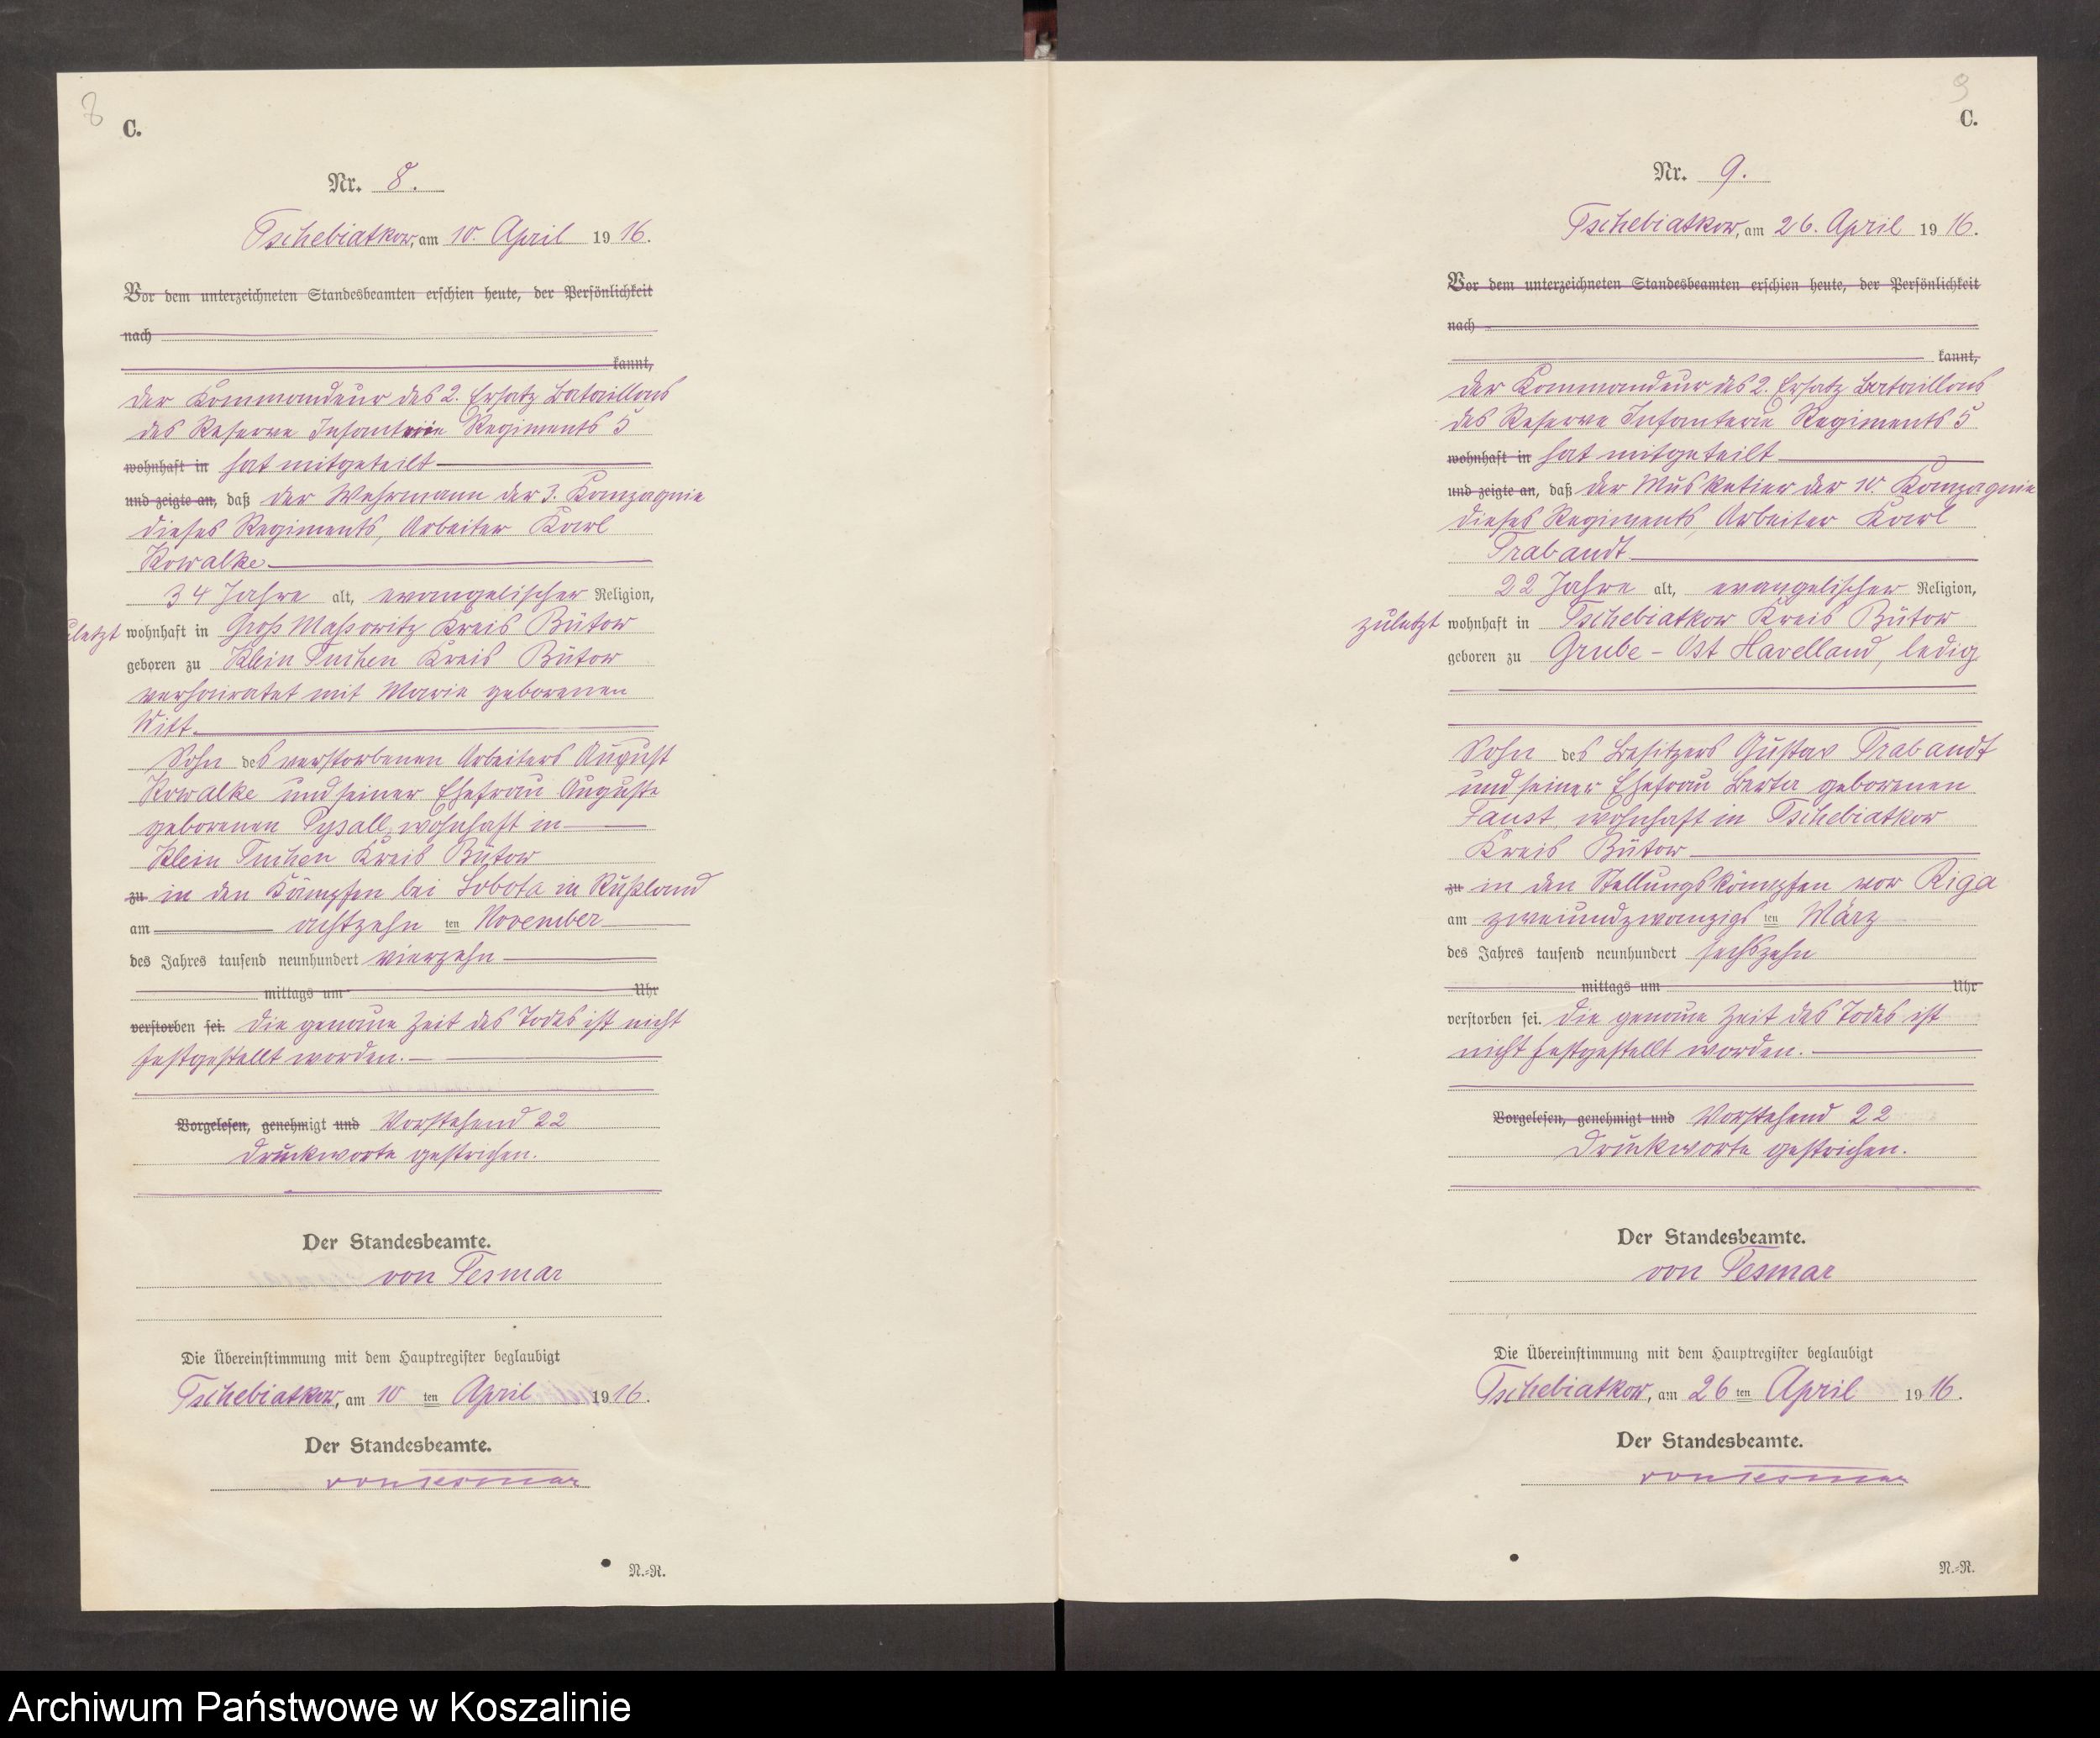 8
C.
Nr. 8.
Tschebiatkow, am 10. April 1916.
Vor dem unterzeichneten Standesbeamten erschien heute, der Persönlichkeit
nach
kannt,
der Kommandeur des 2. Ersatz Bataillons
des Reserve Infanterie Regiments 5
wohnhaft in hat mitgeteilt
und zeigte an, daß der Wehrmann der 3. Kompagnie
dieses Regiments, Arbeiter Karl
Kowalke
34 Jahre alt, evangelischer Religion,
zuletzt wohnhaft in Groß Massowitz Kreis Bütow
geboren zu Klein Tuchen Kreis Bütow
verheiratet mit Marie geborenen
Witt.
Sohn des verstorbenen Arbeiters August
Kowalke und seiner Ehefrau Auguste
geborenen Pysall, wohnhaft in
Klein Tuchen Kreis Bütow
zu in den Kämpfen bei Sobota in Rußland
am achtzehn ten November
des Jahres tausend neunhundert vierzehn
mittags um Uhr
verstorben sei. Die genaue Zeit des Todes ist nicht
festgestellt worden.
Vorgelesen, genehmigt und Vorstehend 22
Druckworte gestrichen.
Der Standesbeamte.
von Tesmar
Die Übereinstimmung mit dem Hauptregister beglaubigt
Tschebiatkow, am 10 ten April 1916.
Der Standesbeamte.
von Tesmar
N.-R.
9
C.
Nr. 9.
Tschebiatkow, am 26. April 1916.
Vor dem unterzeichneten Standesbeamten erschien heute, der Persönlichkeit
nach
kannt,
der Kommandeur des 2. Ersatz Bataillons
des Reserve Infanterie Regiments 5
wohnhaft in hat mitgeteilt
und zeigte an, daß der Musketier der 10. Kompagnie
dieses Regiments, Arbeiter Karl
Trabandt
22 Jahre alt, evangelischer Religion,
zuletzt wohnhaft in Tschebiatkow Kreis Bütow
geboren zu Grube - Ost Havelland, ledig
Sohn des Besitzers Gustav Trabandt
und seiner Ehefrau Berta geborenen
Faust, wohnhaft in Tschebiatkow
Kreis Bütow
zu in den Stellungskämpfen vor Riga
am zweiundzwanzigs ten März
des Jahres tausend neunhundert sechszehn
mittags um Uhr
verstorben sei. Die genaue Zeit des Todes ist
nicht festgestellt worden.
Vorgelesen, genehmigt und Vorstehend 22
Druckworte gestrichen.
Der Standesbeamte.
von Tesmar
Die Übereinstimmung mit dem Hauptregister beglaubigt
Tschebiatkow, am 26 ten April 1916.
Der Standesbeamte.
von Tesmar
N.-R.
Archiwum Państwowe w Koszalinie